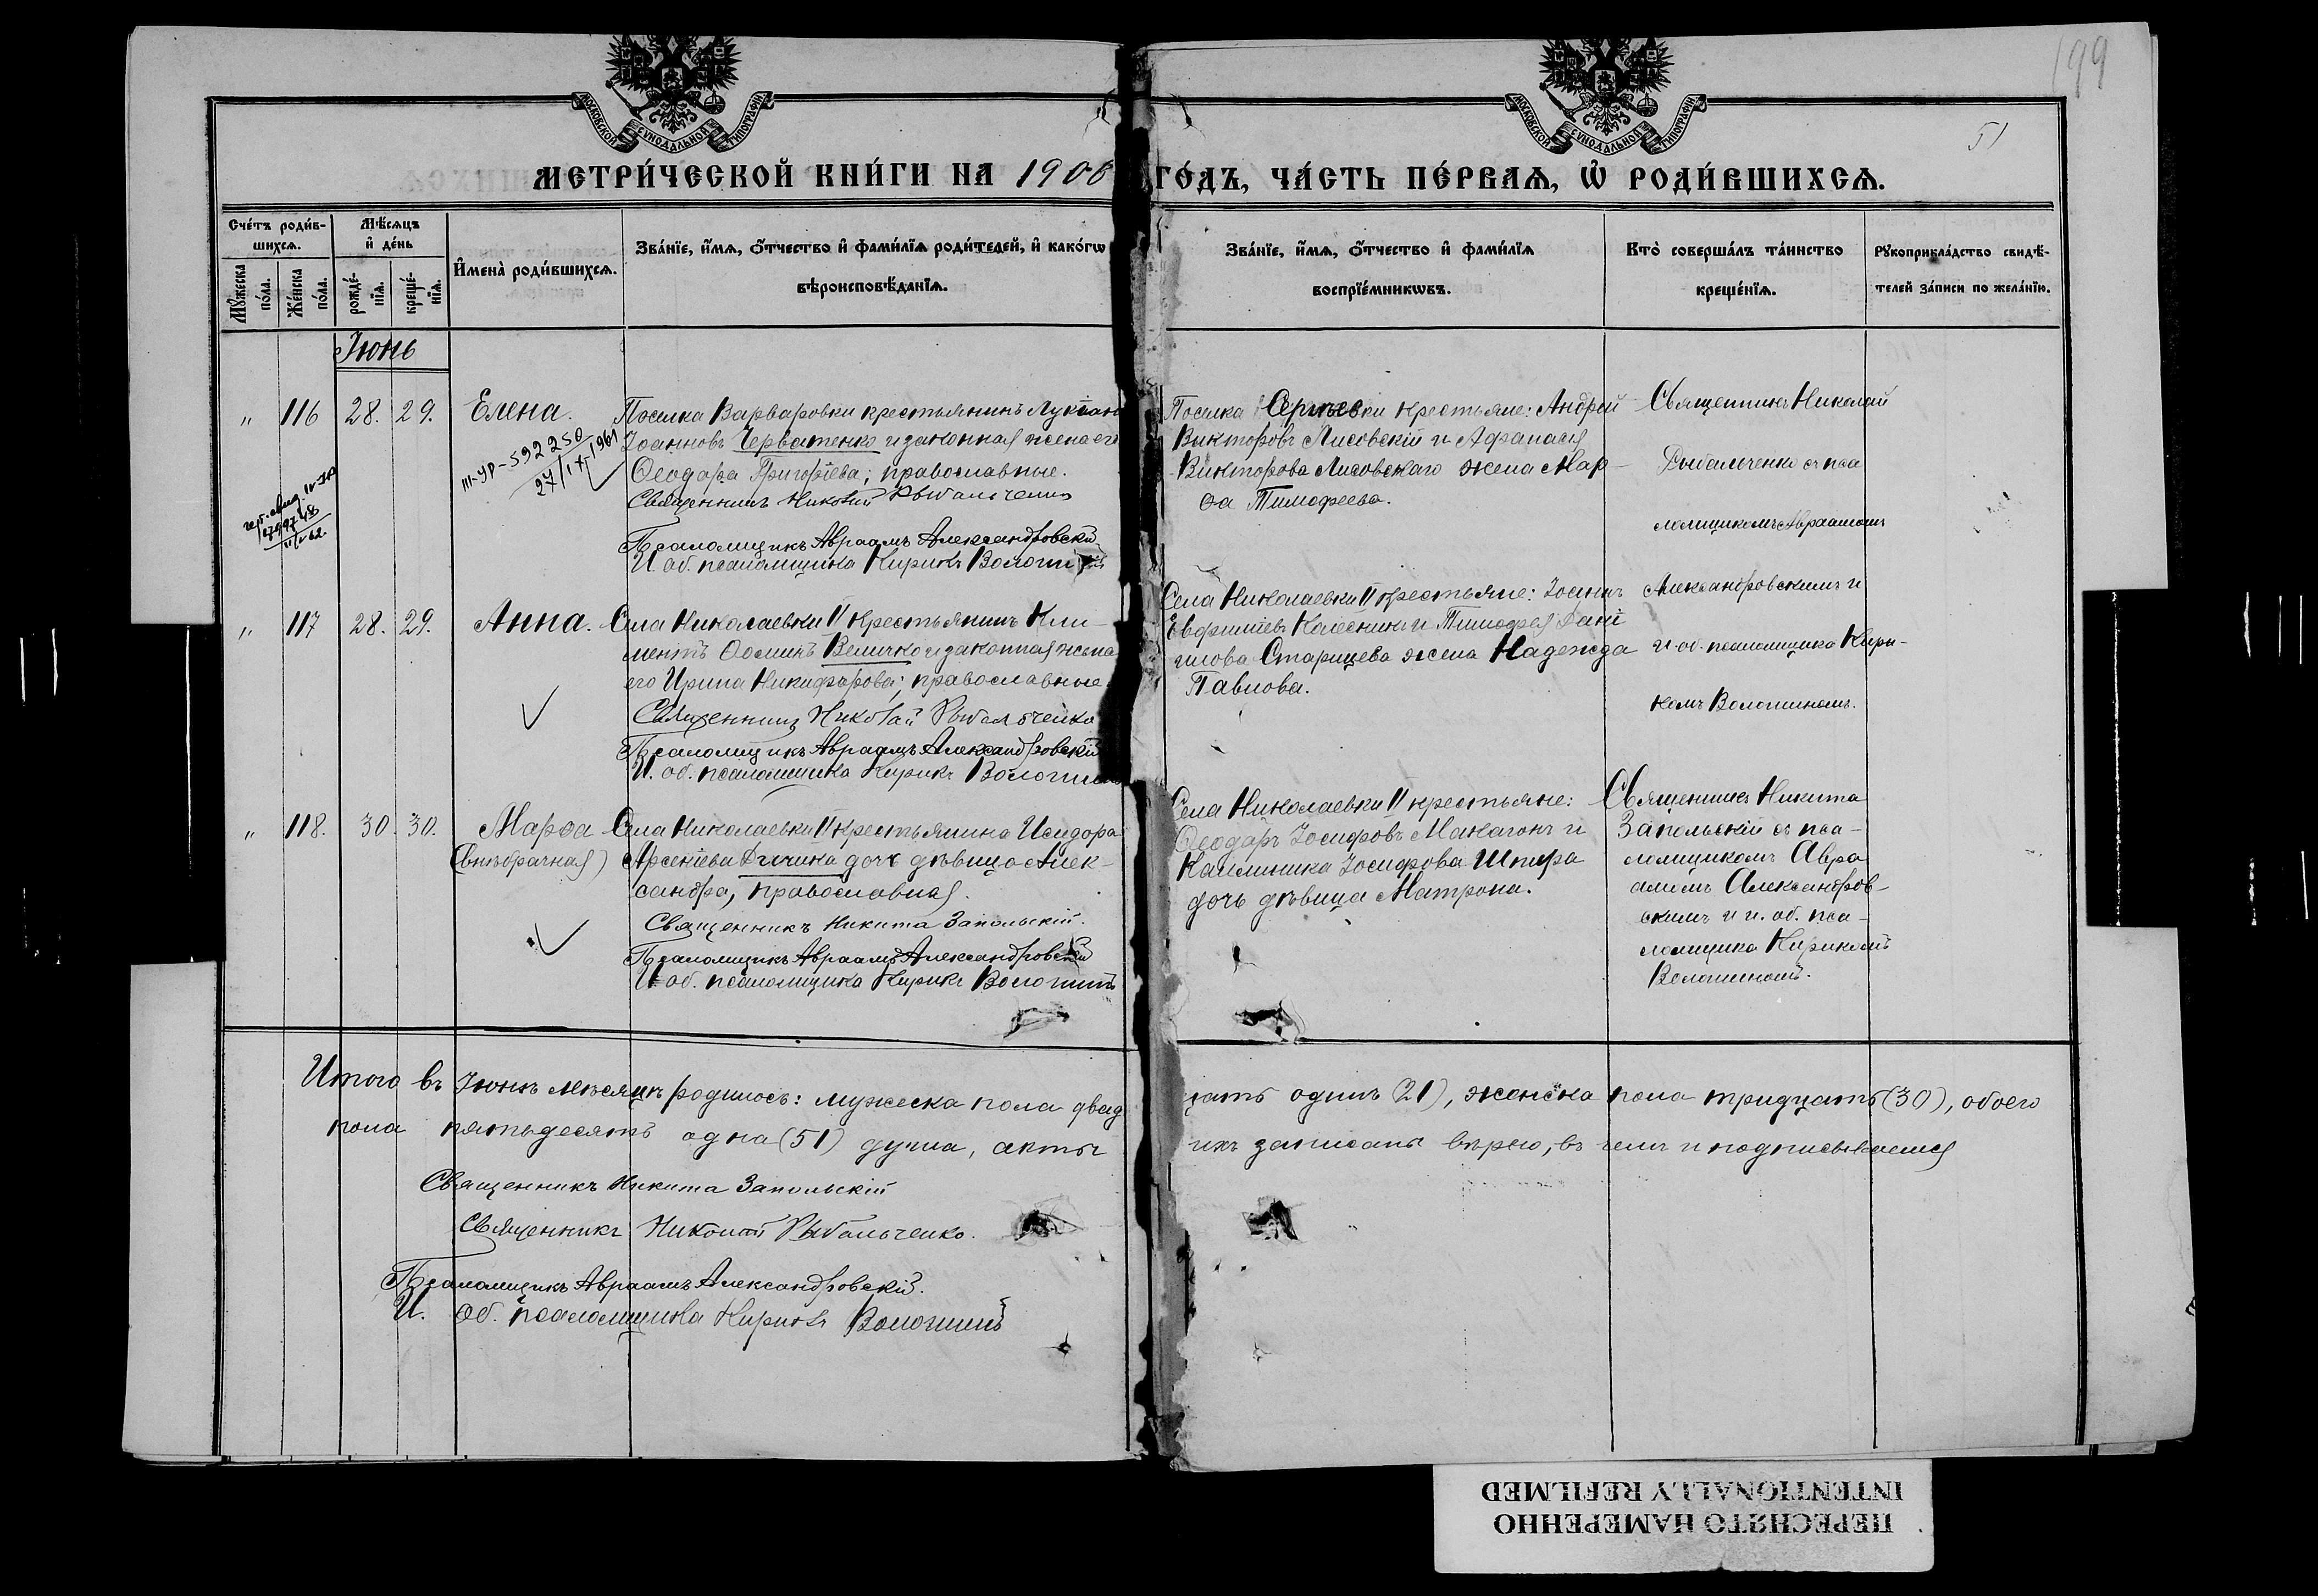 199
51
МОСКОВСКОЙ СѴНОДАЛЬНОЙ ТИПОГРАФІИ
МОСКОВСКОЙ СѴНОДАЛЬНОЙ ТИПОГРАФІИ
МЕТРИ́ЧЕСКОЙ КНИ́ГИ НА 1908 ГО́ДЪ, ЧА́СТЬ ПЕ́РВАѦ, Ѡ҆ РОДИ́ВШИХСѦ.
Сче́тъ роди́в-
шихсѧ.
Мꙋ́жеска по́ла.
Же́нска по́ла.
Мѣ́сѧцъ
и҆ де́нь
рожде́-
нїѧ.
креще́-
нїѧ.
И҆мена̀ роди́вшихсѧ.
Зва́нїе, и҆́мѧ, ѻ҆́тчество и҆ фами́лїѧ роди́телей, и҆ како́гѡ
вѣроисповѣ́данїѧ.
Зва́нїе, и҆́мѧ, ѻ҆́тчество и҆ фами́лїѧ
воспрїе́мникѡвъ.
Кто̀ соверша́лъ та́инство
креще́нїѧ.
Рꙋкоприкла́дство свидѣ́-
телей за́писи по жела́нїю.
Іюнь
" 116 28. 29. Елена.
Поселка Варваровки крестьянинъ Лукіан
Іоанновъ Черватенко и законная жена его
Ѳеодора Григоріева; православные.
Священникъ Николай Рыбальченко
Псаломщикъ Авраамъ Александровскій
И. об. псаломщика Кирикъ Волошинъ
III-УР-592250
27/IX 1961
Поселка Сергѣевки крестьяне: Андрей
Викторовъ Лисовскій и Афанасія
Викторова Лисовскаго жена Мар-
ѳа Тимофеева.
Священникъ Николай
Рыбальченко съ пса
ломщикомъ Авраамомъ
Александровскимъ и
и. об. псаломщика Кири-
комъ Волошинымъ.
" 117 28. 29. Анна.
Села Николаевки II крестьянинъ Кли-
ментъ Ѳоминъ Величко и законная жена
его Ирина Никифорова; православные.
Священникъ Николай Рыбальченко
Псаломщикъ Авраамъ Александровскій
И. об. псаломщика Кирикъ Волошинъ
Села Николаевки II крестьяне: Іоаннъ
Евфиміевъ Колесникъ и Тимофея Дані
илова Старицева жена Надежда
Павлова.
" 118. 30. 30. Марѳа
(внѣбрачная)
Села Николаевки II крестьянина Исидора
Арсеніева дочь дѣвица Алек-
сандра, православная.
Священникъ Никита Запольскій.
Псаломщикъ Авраамъ Александровскій
И. об. псаломщика Кирикъ Волошинъ
Села Николаевки II крестьяне:
Ѳеодоръ Іосифовъ Макагонъ и
Каллиника Іосифова Шпира
дочь дѣвица Матрона.
Священникъ Никита
Запольскій съ пса-
ломщикомъ Авра
амомъ Александров-
скимъ и и. об. пса-
ломщика Кирикомъ
Волошинымъ.
Итого въ Іюнѣ мѣсяцѣ родилось: мужеска пола двад цать одинъ (21), женска пола тридцать (30), обоего
пола пятьдесятъ одна (51) душа, акты ихъ записаны вѣрно, въ чемъ и подписываемся
Священникъ Никита Запольскій
Священникъ Николай Рыбальченко.
Псаломщикъ Авраамъ Александровскій.
И. об. псаломщика Кирикъ Волошинъ
ПЕРЕСНЯТО НАМЕРЕННО
INTENTIONALLY REFILMED